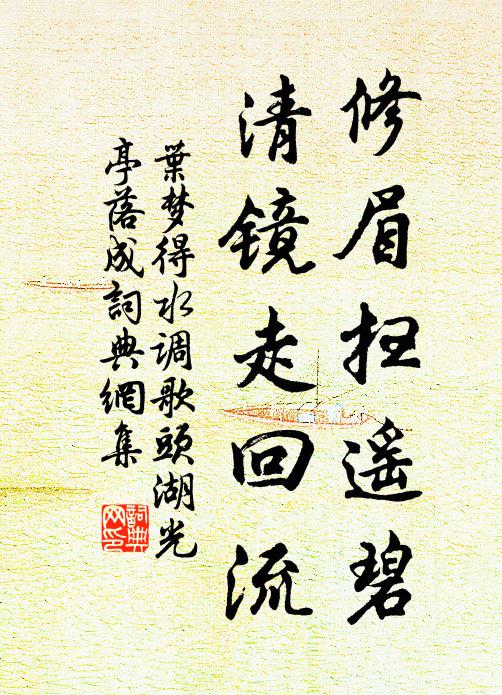 修眉扫遥碧
清镜走回流
葉梦得水调歌頭湖光
亭落成詞典網集
詞典网印